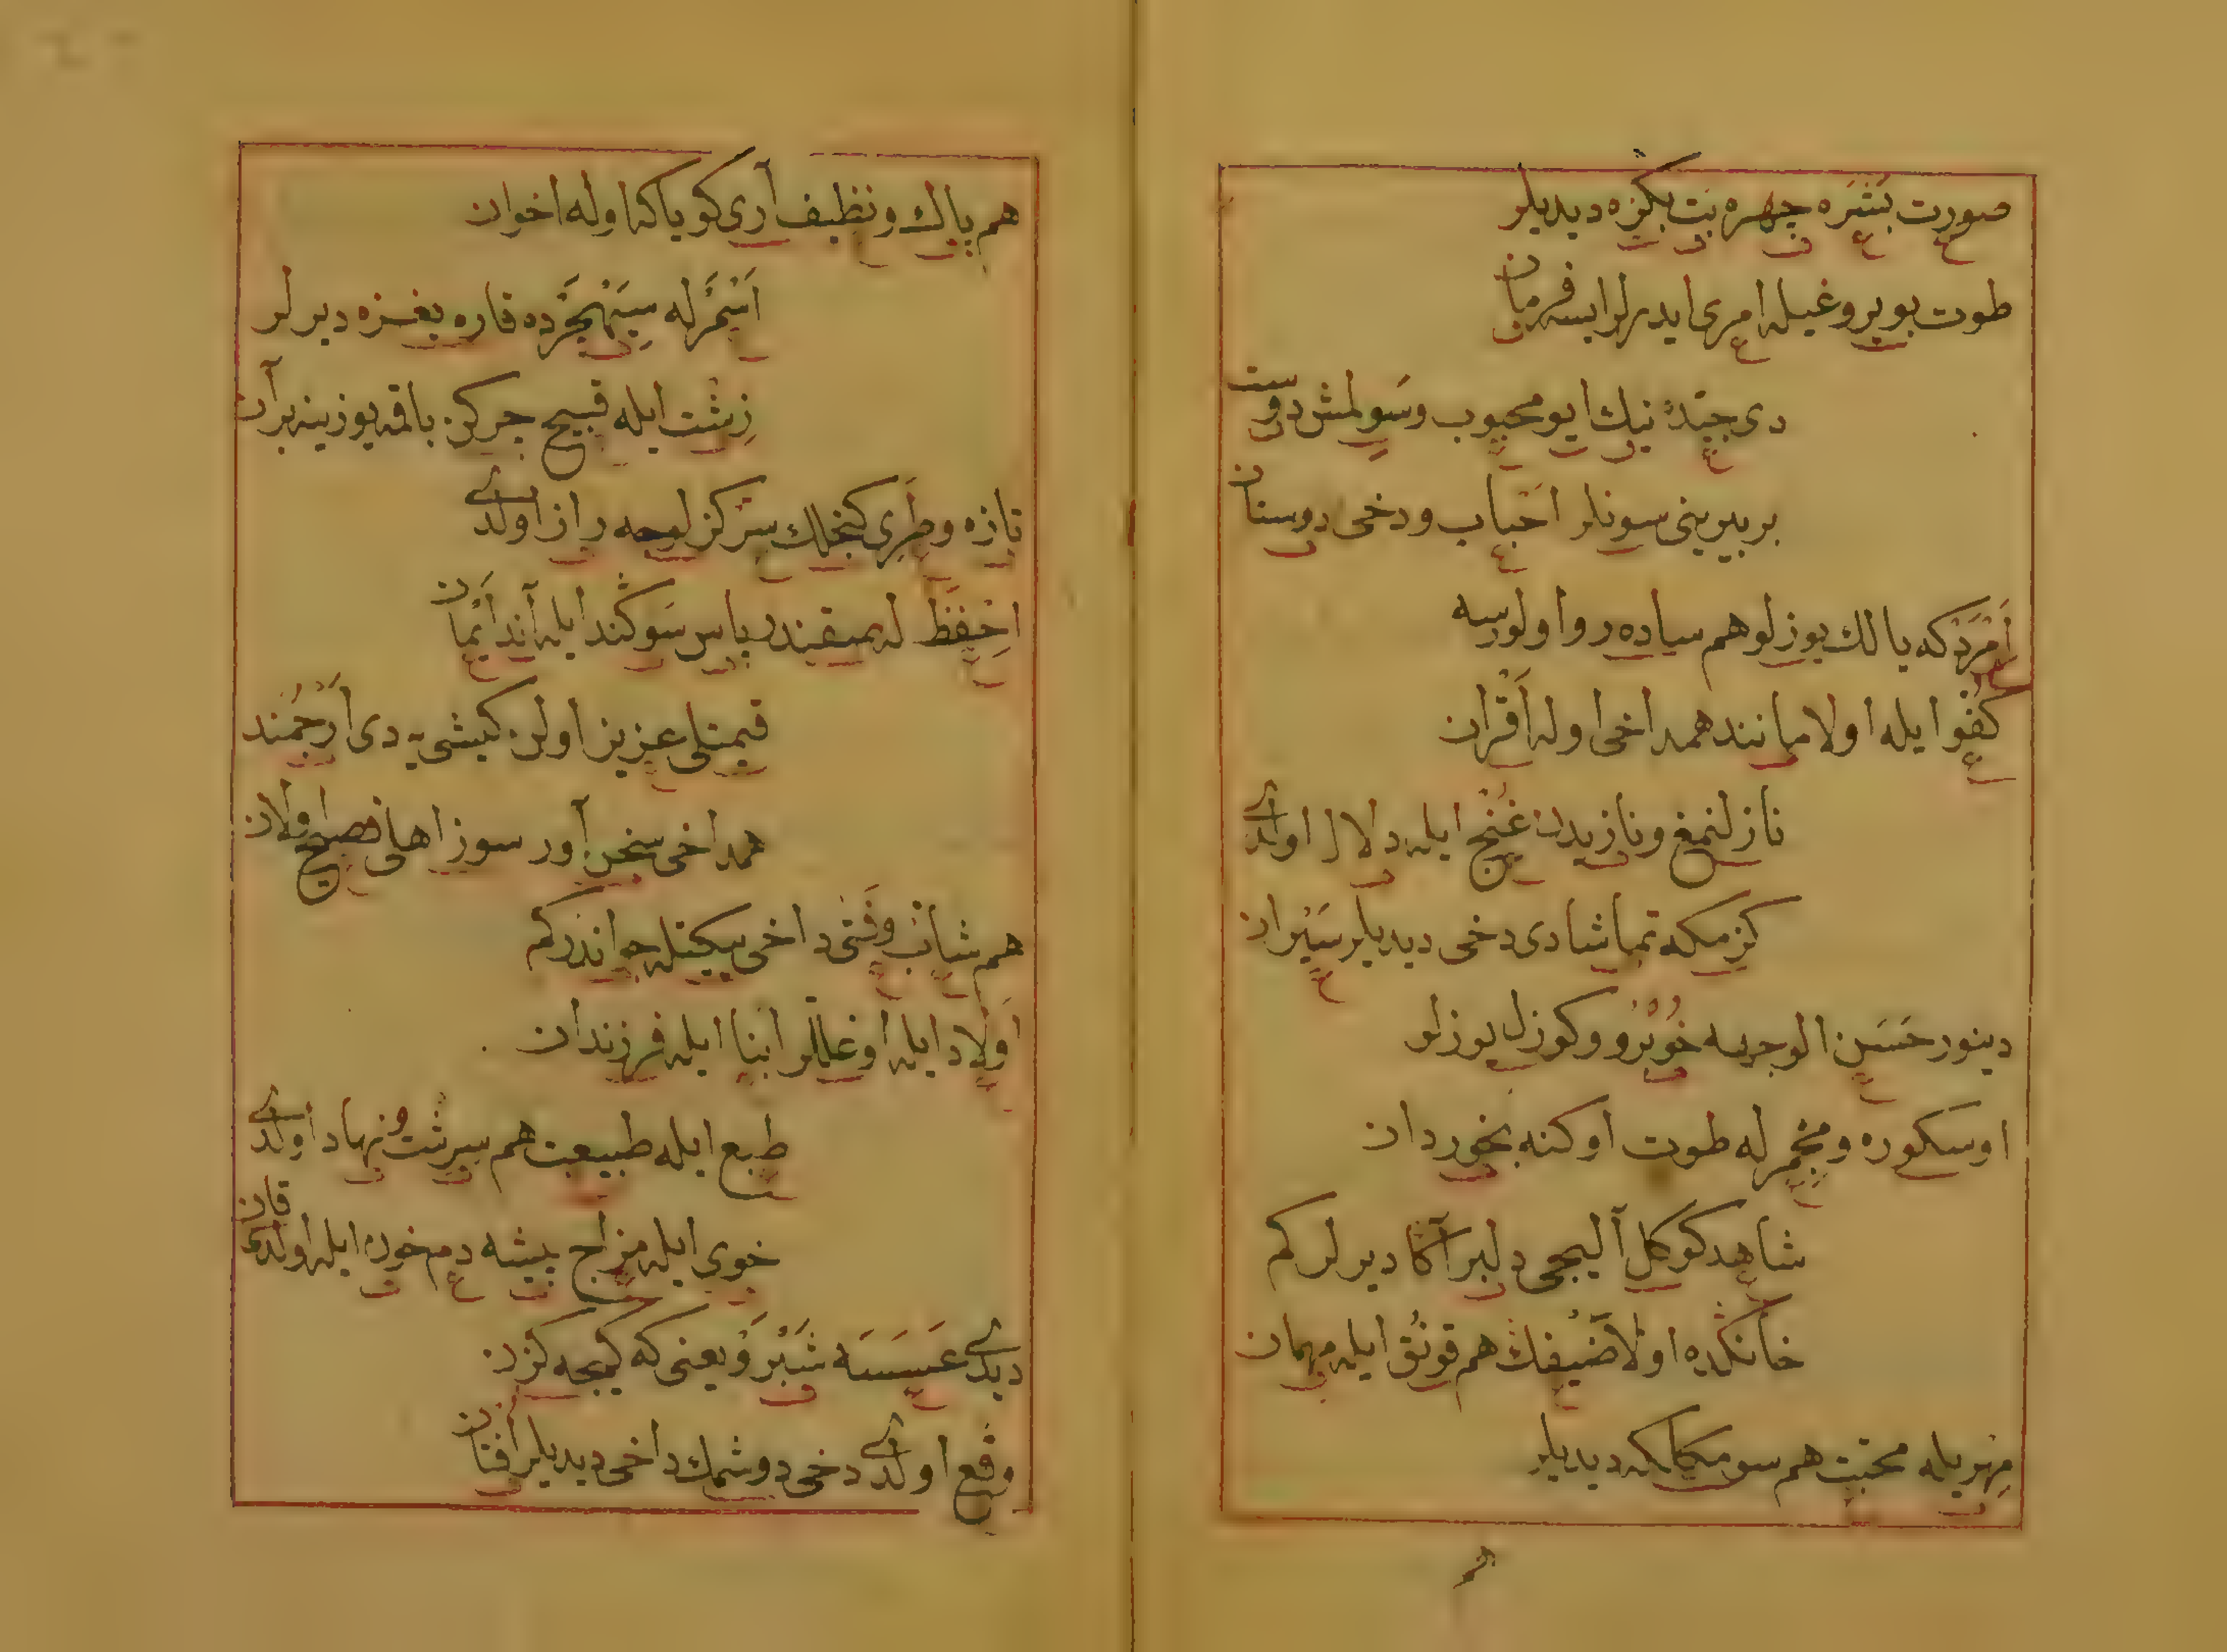 صورت بَشَرَه چهره بت بكزه ديديلر
طوت بويروغيله امرى ايدرلر ايسه فرمان
دى جيّد نيك ايو محبوب و سَولمش دوست
بر بيرينى سونلر اَحْباب ودخى دوستان
اَمْرَدْ كه پاك يوزلو هم ساده رو اولورسه
كُفْو ايله اولا مانند همداخى اوله اَقْران
نازلنمغ و نازيدن غُنْج ايله دلال اولدى
كزمكه تماشا دى دخى ديديلر سَيْران
دينور حَسَن الوجهه خُوبْرُو و كوزل يوزلو
اوسكوره و مِجْمَر له طوت اوكنه بخوردان
شاهد كوكل آليجى دلبر آكا ديرلر كم
خانكده اولا ضَيْفك هم قونُق ايله مهمان
مِهْر يله محبّت هم سومكلكه ديديلر
هم
هم پاك و نظيف آرى كويا كه اوله اخوان
اَسْمَر له سِيَهْ‌چَرْده قاره يغزه ديرلر
زِشْت ايله قبيح چركن باقمه يوزينه بر آن
تازه و طَرِى كنجلك سِر كزلوجه راز اولدى
اِحْفَظْ له يمين پاس سَوكَند ايله آند اَيْمان
قيمتلى عزيز اولن كيشى يه دى اَرْجُمَند
همداخى سخن‌آور سوز اهلى فصيح اولان
هم شابّ و فَتى داخى يكيتله جواندر كم
اَولاد ايله اوغللر ابنا ايله فرزندان
طبع ايله طبيعت هم سرشت و نهاد اولدى
خوى ايله مزاج پيشه دم خون ايله اولدى قان
ديدى عَسَسَه شَبْرَوْ يعنى كه كيجه كزن
وقع اولدى دخى دوشمك داخى ديديلر اُفتان